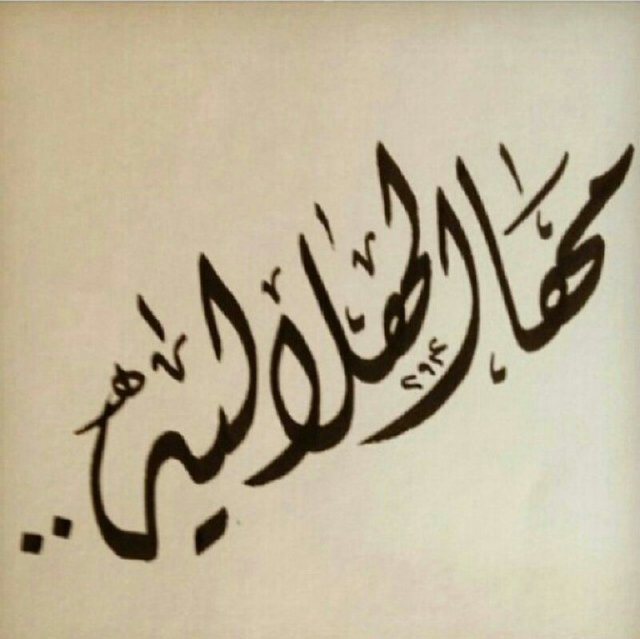 مها الهلاليه..